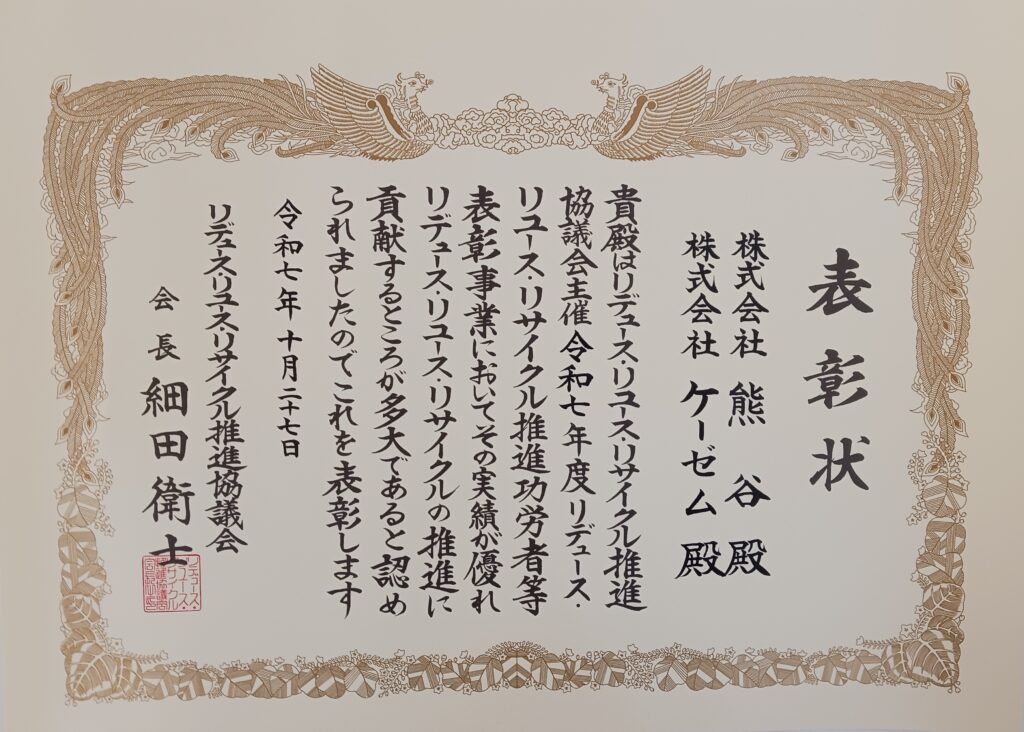 表彰状
株式会社 熊谷殿
株式会社 ケーゼム殿
貴殿はリデュース・リユース・リサイクル推進
協議会主催令和七年度リデュース・
リユース・リサイクル推進功労者等
表彰事業においてその実績が優れ
リデュース・リユース・リサイクルの推進に
貢献するところが多大であると認め
られましたのでこれを表彰します
令和七年十月二十七日
リデュース・リユース・リサイクル推進協議会
会長 細田衛士